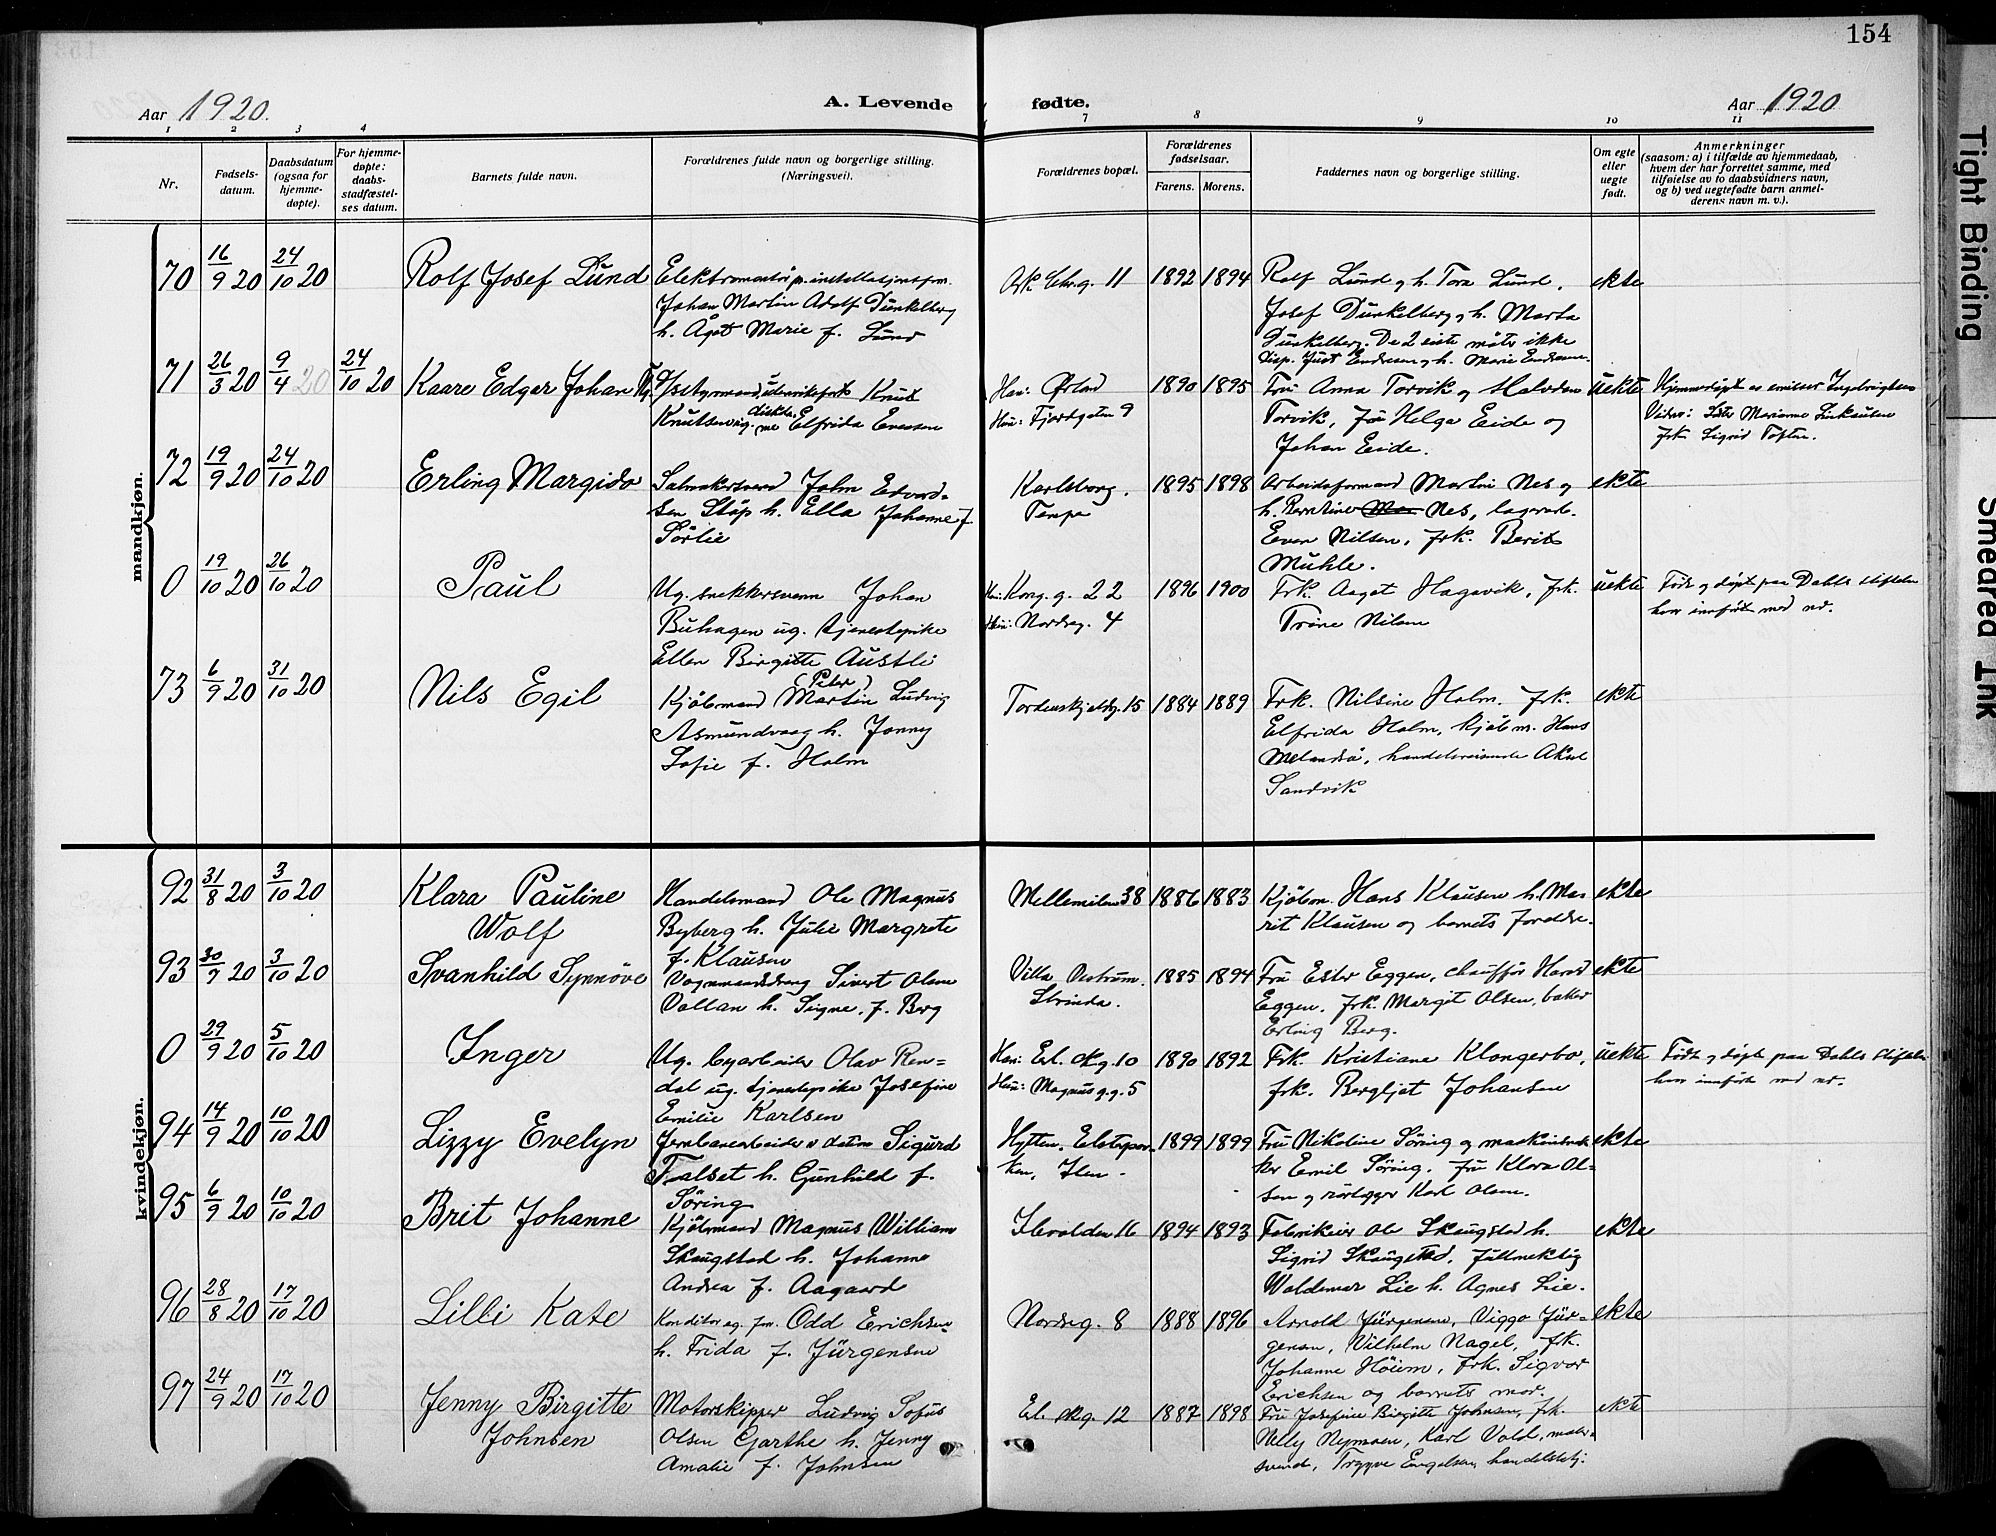 154
Aar 1920.
A. Levende
fødte.
Aar 1920
1 2 3 4 7 8 9 10 11
Nr.
Fødsels-
datum.
Daabsdatum
(ogsaa for
hjemme-
døpte).
For hjemme-
døpte:
daabs-
stadfæstel-
ses datum.
Barnets fulde navn.
Forældrenes fulde navn og borgerlige stilling.
(Næringsvei).
Forældrenes bopæl.
Forældrenes
fødselsaar.
Farens. Morens.
Faddernes navn og borgerlige stilling.
Om egte
eller
uegte
født.
Anmerkninger
(saasom: a) i tilfælde av hjemmedaab,
hvem der har forrettet samme, med
tilføielse av to daabsvidners navn,
og b) ved uegtefødte barn anmel-
derens navn m. v.).
mandkjøn.
70 16/9 20 24/10 20 Rolf Josef Lund
Johan Martin Adolf Dunkelberg
h. Ågot Marie f. Lund
11 1892 1894
Rolf Lund og h. Tora Lund,
Josef Dunkelberg og h. Marta
Dunkelberg. De 2 siste møter ikke
ekte
71 26/3 20 9/4 20 24/10 20 Kaare Edgar Johan
Knut
Elfrida
Han: Ørland
Hun: Fjordgaten 9
1890 1895
Fru Anna Torvik og Halvdan
Torvik, fru Helga Eide og
Johan Eide.
uekte
frk Sigrid
72 19/9 20 24/10 20 Erling Margido
Salmakersvend John Edvard-
sen Støp h. Ella Johanne f.
Sørlie
Karlsborg,
Tempe
1895 1898
Arbeidsformand Martin Nes og
h. Nes,
Even Nilsen, frk. Berit
Muhle.
ekte
0 19/10 20 26/10 20 Paul
Ug. snekkersvenn Johan
Buhagen ug. tjenestepike
Ellen Birgitte Austli
Han: Kong. g. 22
Hun: Nordreg. 4
1896 1900
Frk. Aagot Hagavik, frk.
Trine Nilsen
uekte
Født og døpt paa Dahls stiftelse
hvor innført med nr.
73 6/9 20 31/10 20 Nils Egil
(Peter)
Kjøbmand Martin Ludvig
Asmundvaag h. Jonny
Sofie f. Holm
Tordenskjoldsg. 15
1884 1889
Frk. Nilsine Holm. frk.
Elfrida Holm, kjøbm. Hans
Melandsø, handelsreisende Aksel
Sandvik
ekte
kvindekjøn.
92 31/8 20 3/10 20 Klara Pauline
Wolf
Handelsmand Ole Magnus
Byberg h. Julie Margrete
f. Klausen
Mellemilen 38 1886 1883
Kjøbm. Hans Klausen h. Ma-
rit Klausen og barnets foreldre.
ekte
93 30/7 20 3/10 20 Svanhild Synnøve
Vognmandsdreng Sivert Olsen
Vollan h. Signe, f. Berg
Villa
Strinda.
1885 1894
Fru Ester Eggen, chauffør Harald
Eggen, frk. Margit Olsen, baker
Erling Berg.
ekte
0 29/9 20 5/10 20 Inger
Ug. byarbeider Olav Ren-
dal ug. tjenestepike Josefine
Emilie Karlsen
Han: Erl. skg. 10
Hun: Magnus g.g. 5
1890 1892
Frk. Kristiane Klongerbo,
frk. Bergljot Johansen
uekte
Født og døpt paa Dahls stiftelse
hvor innført med nr.
94 14/9 20 10/10 20 Lizzy Evelyn
Jernbanearbeider Sigurd
Talset h. Gunhild f.
Søring
Hytten, Elsterpar-
ken, Ilen.
1899 1899
Fru Nikoline Søring og maskinsnek-
ker Emil Søring, fru Klara Ol-
sen og rørlægger Karl Olsen.
ekte
95 6/9 20 10/10 20 Brit Johanne
Kjøbmand Magnus William
Skaugstad h. Johanne
Andrea f. Aagaard
Ilevolden 16 1894 1893
Fabrikeier Ole Skaugstad h.
Sigrid Skaugstad, fullmektig
Waldemar Lie h. Agnes Lie.
ekte
96 28/8 20 17/10 20 Lilli Kate
Konditor og fm. Odd Erichsen
h. Frida f. Jürgensen
Nordreg. 8 1888 1896
Arnold Jürgensen, Viggo Jür-
gensen, Vilhelm Nagel, frk.
Johanne Høiem, frk. Sigvor
Erichsen og barnets mor.
ekte
97 24/9 20 17/10 20 Jenny Birgitte
Johnsen
Motorskipper Ludvig Sofus
Olsen Garthe h. Jenny
Amalie f. Johnsen
Erl. skg. 12 1887 1898
Fru Josefine Birgitte Johnsen, frk.
Nelly Nymoen, Karl Vold, maler-
svend, Trygve Engelsen, handelsbetj.
ekte
Tight Binding
Smeared Ink